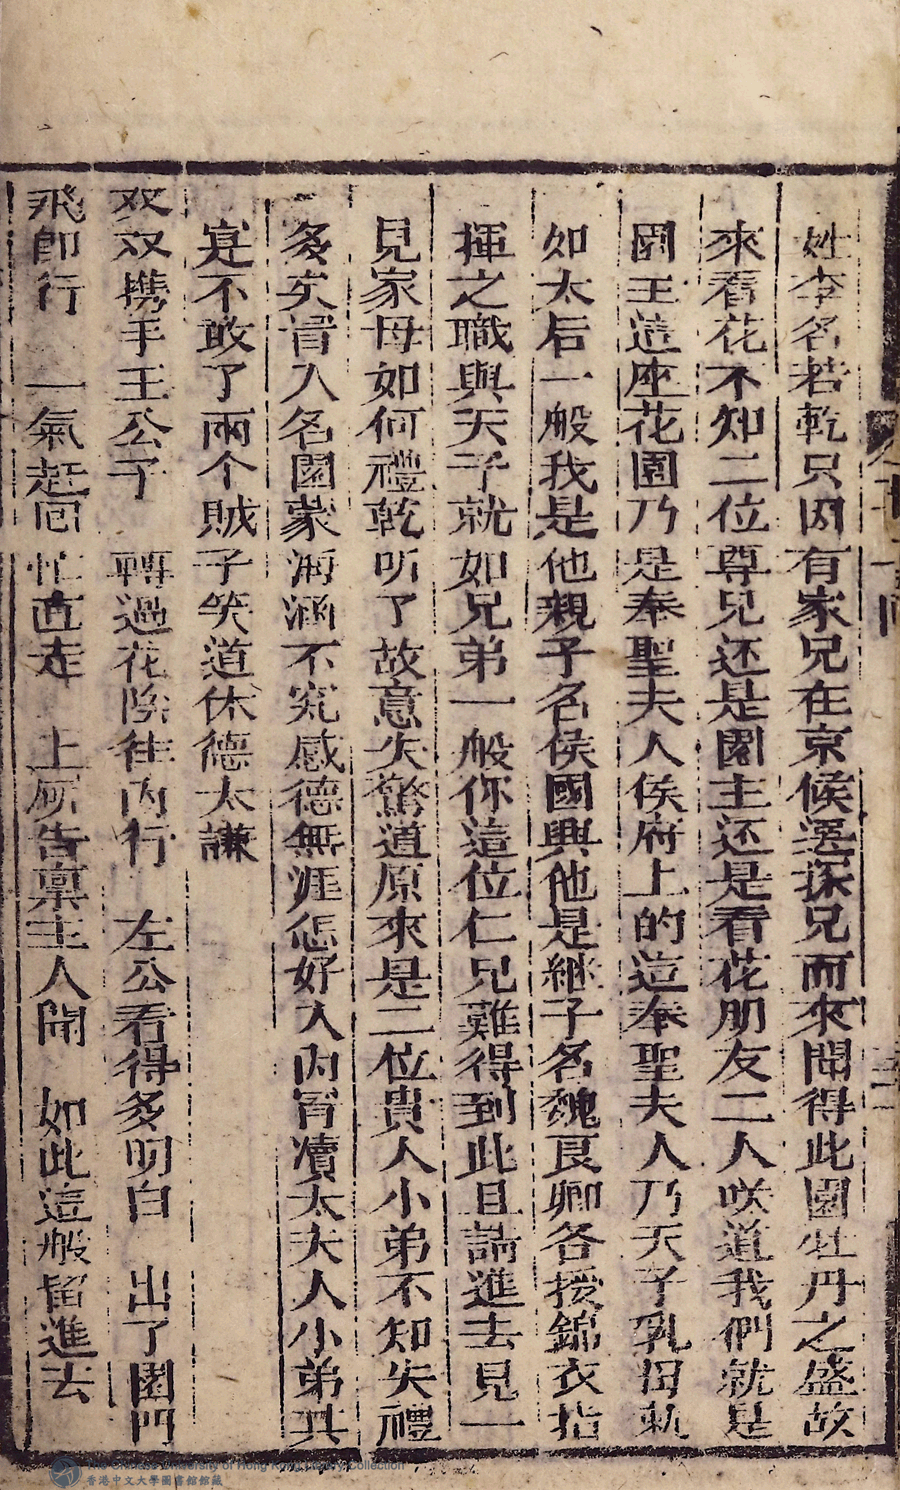 姓李名若乾只因有家兄在京候選探兄而來聞得此園牡丹之盛故
來看花不知二位尊兄还是園主还是看花朋友二人咲道我們就是
園王這座花園乃是奉聖夫人侯府上的這奉聖夫人乃天子乳母就
如太后一般我是他親子名侯國興他是継子名魏良卿各授錦衣指
揮之職與天子就如兄弟一般你這位仁兄難得到此且請進去見一
見家母如何禮乾听了故意失驚道原來是二位貴人小弟不知失禮
多矣冐入名園蒙海涵不究感德無涯怎好入内冐凟太夫人小弟其
寔不敢了兩个賊子笑道休德太謙
双双携手王公子 轉過花陰往内行 左公看得多明白 出了園門
飛郎行 一氣赶回忙直走 上𠩄告禀主人聞 如此這般畱進去
The Chinese University of Hong Kong Library Collection
香港中文大學圖書館館藏